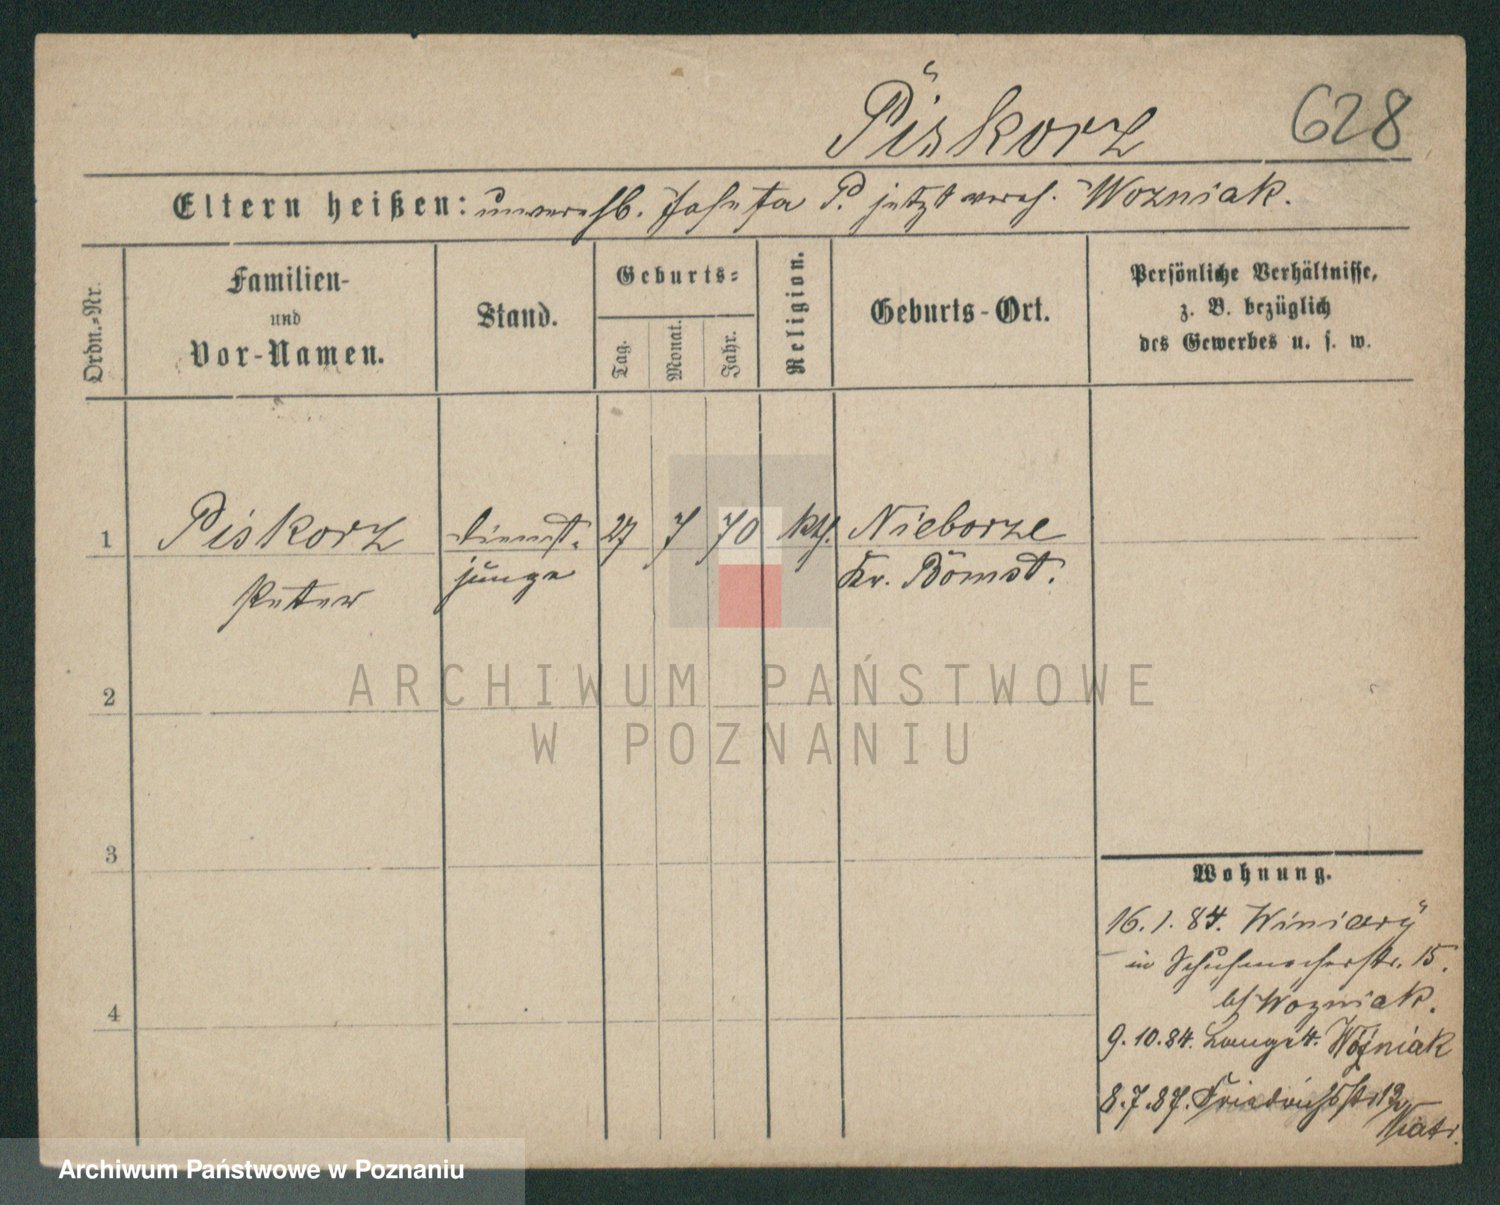 Piskorz
628
Eltern heißen: unverehl. Josefa P. jetzt vereh. Wozniak.
Ordn.-Nr.
Familien-
und
Vor-Namen.
Stand.
Geburts-
Tag.
Monat.
Jahr.
Religion.
Geburts-Ort.
Persönliche Verhältnisse,
z. B. bezüglich
des Gewerbes u. s. w.
1 Piskorz Dienst- 27 7 70 kth. Nieborze
Peter junge Kr. Bomst.
2
3
4
Wohnung.
16.1.84. Winiary
in Schuhmacherstr. 15.
bei Wozniak.
9.10.84. Lange 4. Woźniak
8.7.87. Friedrichsstr 12
ARCHIWUM PAŃSTWOWE
W POZNANIU
Archiwum Państwowe w Poznaniu